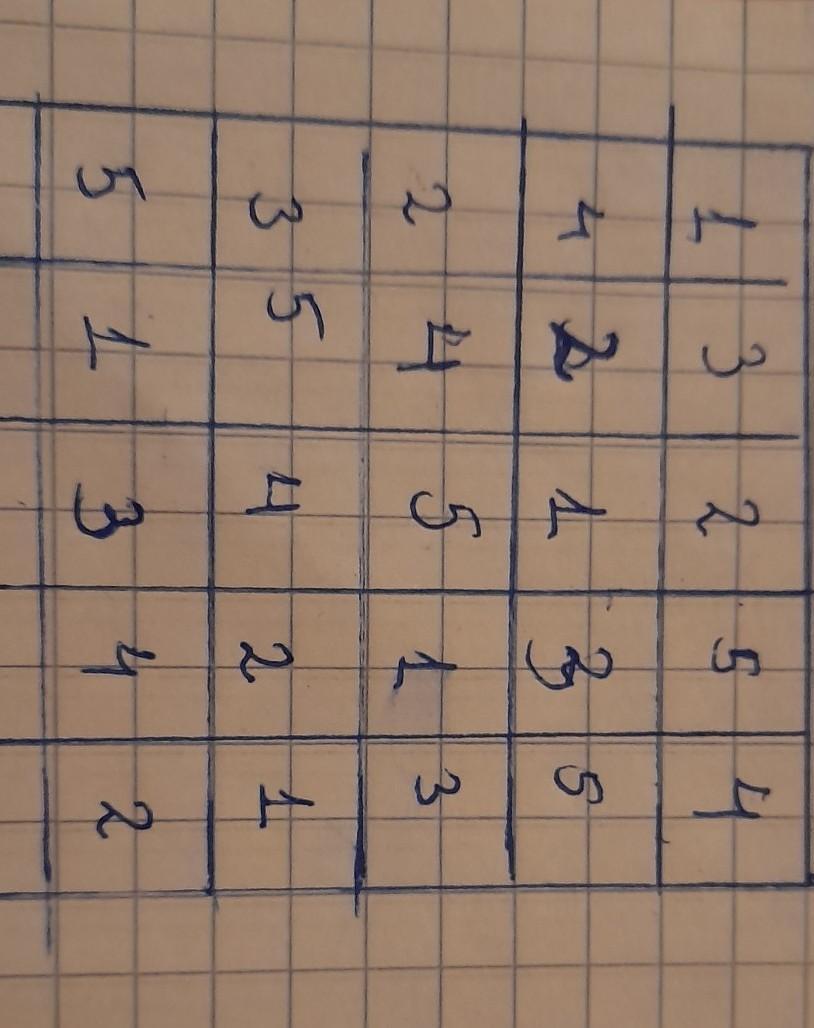 1 3 2 5 4
4 2 1 3 5
2 4 5 1 3
3 5 4 2 1
5 1 3 4 2